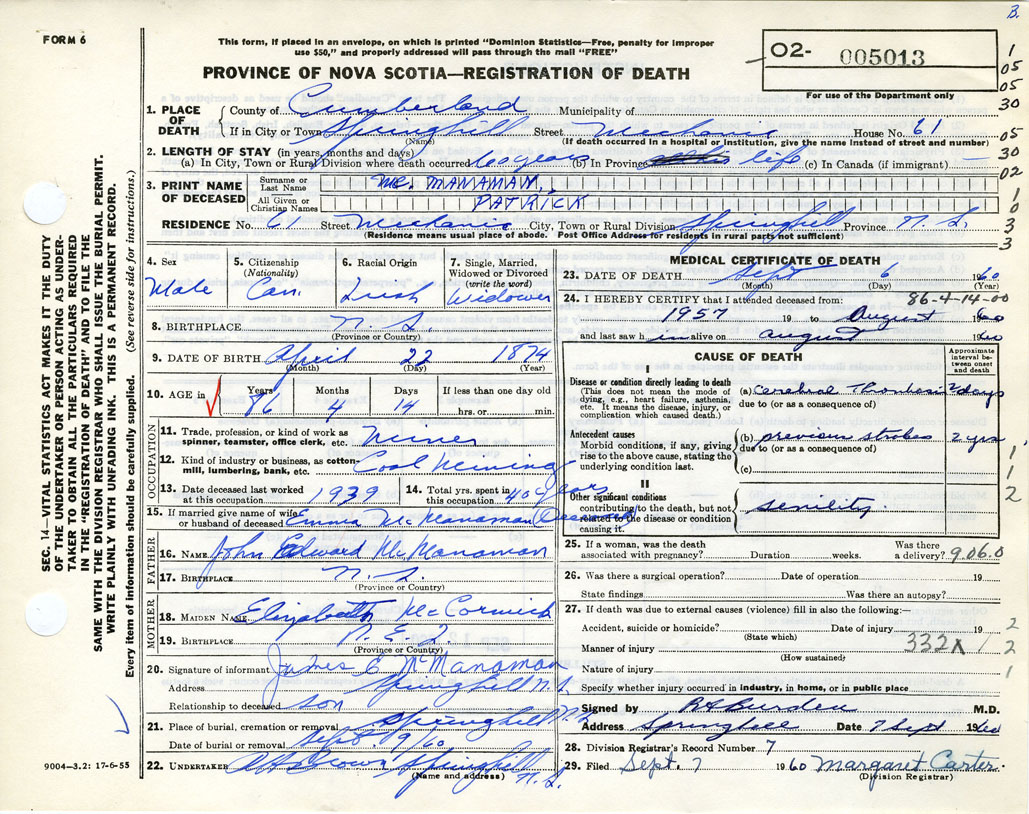 B.
FORM 6
This form, if placed in an envelope, on which is printed "Dominion Statistics—Free, penalty for improper
use $50," and properly addressed will pass through the mail "FREE"
02- 005013
For use of the Department only
PROVINCE OF NOVA SCOTIA—REGISTRATION OF DEATH
1. PLACE OF DEATH
County of Cumberland Municipality of
If in City or Town Springhill Street Mechanic House No. 61
(Name) (If death occurred in a hospital or institution, give the name instead of street and number)
2. LENGTH OF STAY (in years, months and days)
(a) In City, Town or Rural Division where death occurred 60 years (b) In Province life (c) In Canada (if immigrant) —
3. PRINT NAME OF DECEASED
Surname or Last Name Mc. MANAMAN,
All Given or Christian Names PATRICK
RESIDENCE No. 61 Street Mechanic City, Town or Rural Division Springhill Province N.S.
(Residence means usual place of abode. Post Office Address for residents in rural parts not sufficient)
4. Sex
Male
5. Citizenship
(Nationality)
Can.
6. Racial Origin
Irish
7. Single, Married,
Widowed or Divorced
(write the word)
Widower
8. BIRTHPLACE N.S.
(Province or Country)
9. DATE OF BIRTH April 22 1874
(Month) (Day) (Year)
10. AGE in
Years Months Days If less than one day old
86 4 14 hrs. or min.
OCCUPATION
11. Trade, profession, or kind of work as
spinner, teamster, office clerk, etc. Miner
12. Kind of industry or business, as cotton-
mill, lumbering, bank, etc. Coal Mining
13. Date deceased last worked
at this occupation 1939
14. Total yrs. spent in
this occupation 40 years
15. If married give name of wife
or husband of deceased Emma McManaman (Deceased)
FATHER
16. NAME John Edward McManaman
17. BIRTHPLACE N.S.
(Province or Country)
MOTHER
18. MAIDEN NAME Elizabeth McCormick
19. BIRTHPLACE P.E.I.
(Province or Country)
20. Signature of informant James E McManaman
Address Springhill N.S.
Relationship to deceased son
21. Place of burial, cremation or removal Springhill N.S.
Date of burial or removal Sept. 9/60
22. UNDERTAKER Brown Springhill N.S.
(Name and address)
MEDICAL CERTIFICATE OF DEATH
23. DATE OF DEATH Sept 6 1960
(Month) (Day) (Year)
24. I HEREBY CERTIFY that I attended deceased from: 86-4-14-00
1957 19 to August 1960
and last saw him alive on August 1960
CAUSE OF DEATH
Approximate interval between onset and death
I
Disease or condition directly leading to death
(This does not mean the mode of
dying, e.g., heart failure, asthenia,
etc. It means the disease, injury, or
complication which caused death.)
(a) Cerebral Thrombosis 2 days
due to (or as a consequence of)
Antecedent causes
Morbid conditions, if any, giving
rise to the above cause, stating the
underlying condition last.
(b) previous strokes 2 yrs
due to (or as a consequence of)
(c)
II
Other significant conditions
contributing to the death, but not
related to the disease or condition
causing it.
senility.
25. If a woman, was the death
associated with pregnancy? Duration weeks. Was there
a delivery? 906.0
26. Was there a surgical operation? Date of operation 19
State findings Was there an autopsy?
27. If death was due to external causes (violence) fill in also the following:—
Accident, suicide or homicide? Date of injury 19
(State which)
Manner of injury 332X
(How sustained)
Nature of injury
Specify whether injury occurred in industry, in home, or in public place
Signed by Burden M.D.
Address Springhill Date 7 Sept 1960
28. Division Registrar's Record Number 7
29. Filed Sept. 7 1960 Margaret Carter
(Division Registrar)
1
05
05
30
05
30
02
1
0
3
3
1
1
2
2
1 2
1
SEC. 14—VITAL STATISTICS ACT MAKES IT THE DUTY
OF THE UNDERTAKER OR PERSON ACTING AS UNDER-
TAKER TO OBTAIN ALL THE PARTICULARS REQUIRED
IN THE "REGISTRATION OF DEATH" AND TO FILE THE
SAME WITH THE DIVISION REGISTRAR WHO SHALL ISSUE THE BURIAL PERMIT.
WRITE PLAINLY WITH UNFADING INK. THIS IS A PERMANENT RECORD.
Every item of information should be carefully supplied. (See reverse side for instructions.)
9004—3.2: 17-6-55